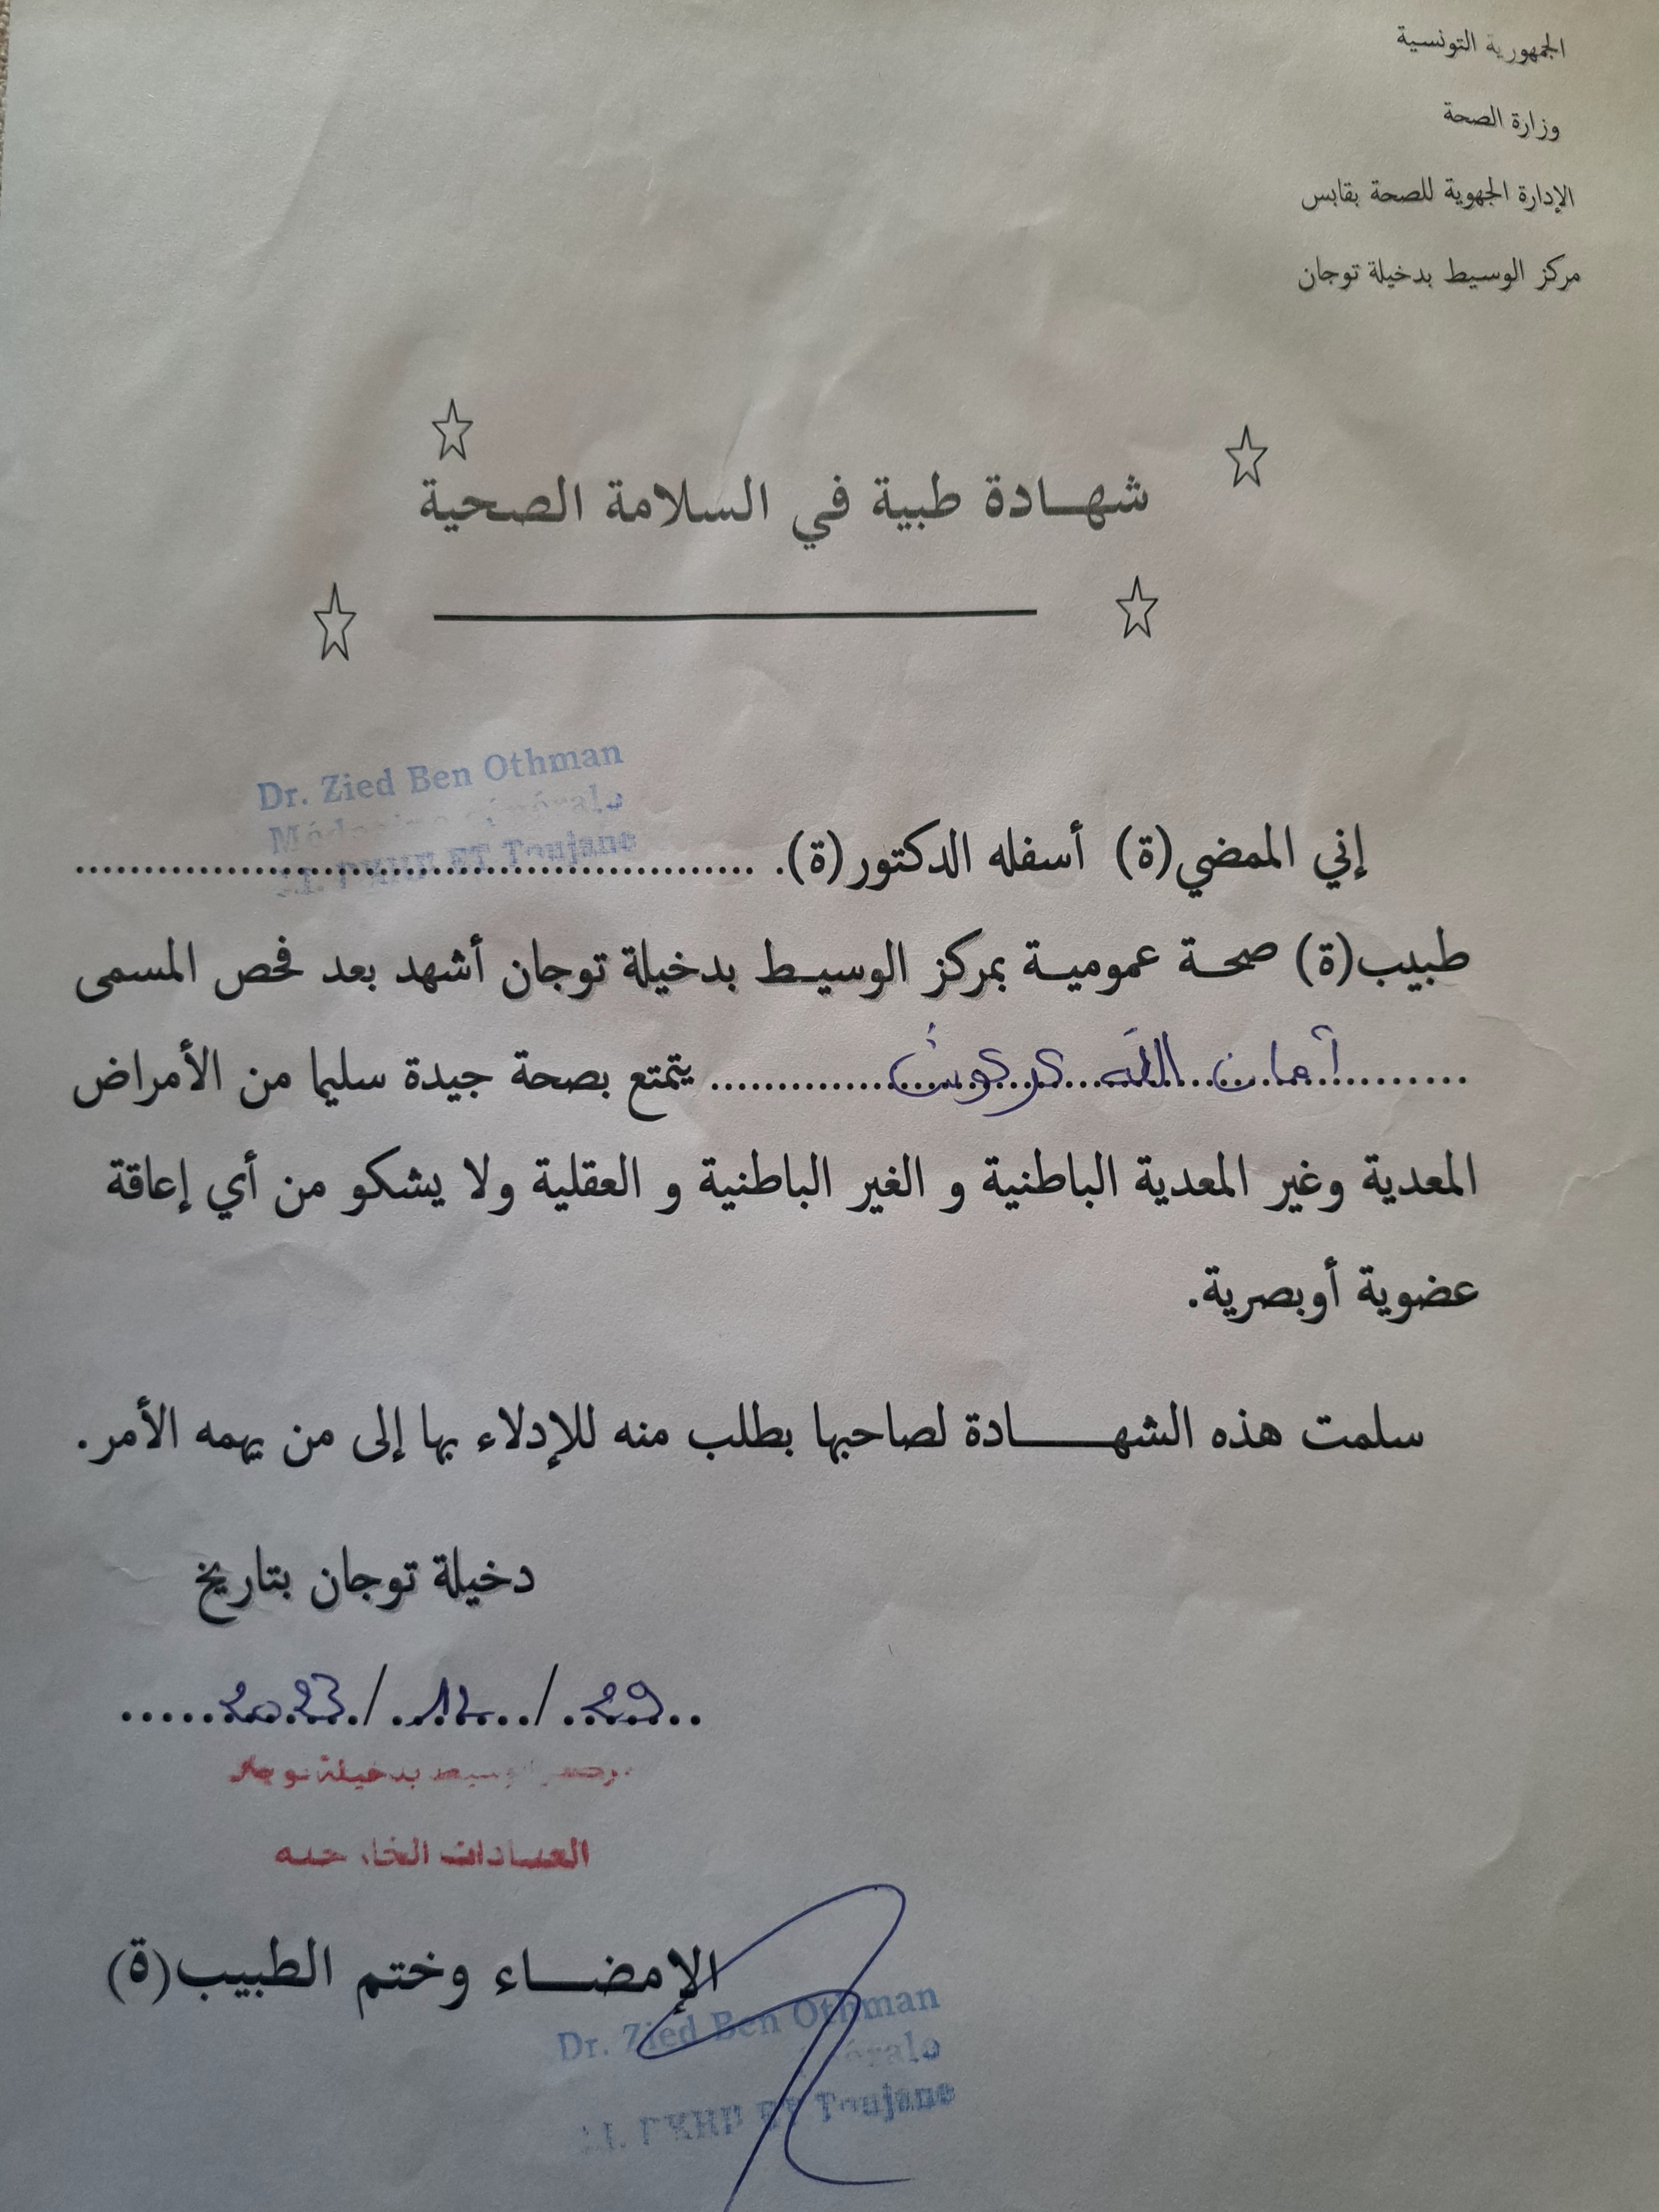 الجمهورية التونسية
وزارة الصحة
الإدارة الجهوية للصحة بقابس
مركز الوسيط بدخيلة توجان
شهادة طبية في السلامة الصحية
Dr. Zied Ben Othman
Toujane
إني الممضي(ة) أسفله الدكتور(ة)
طبيب(ة) صحة عمومية بمركز الوسيط بدخيلة توجان أشهد بعد فحص المسمى
أمان الله كركوش يتمتع بصحة جيدة سليما من الأمراض
المعدية وغير المعدية الباطنية و الغير الباطنية و العقلية ولا يشكو من أي إعاقة
عضوية أوبصرية.
سلمت هذه الشهادة لصاحبها بطلب منه للإدلاء بها إلى من يهمه الأمر.
دخيلة توجان بتاريخ
29/12/2023
بدخيلة توجان
العيادات الخارجية
الإمضاء وختم الطبيب(ة)
Dr. Zied Ben Othman
Toujane